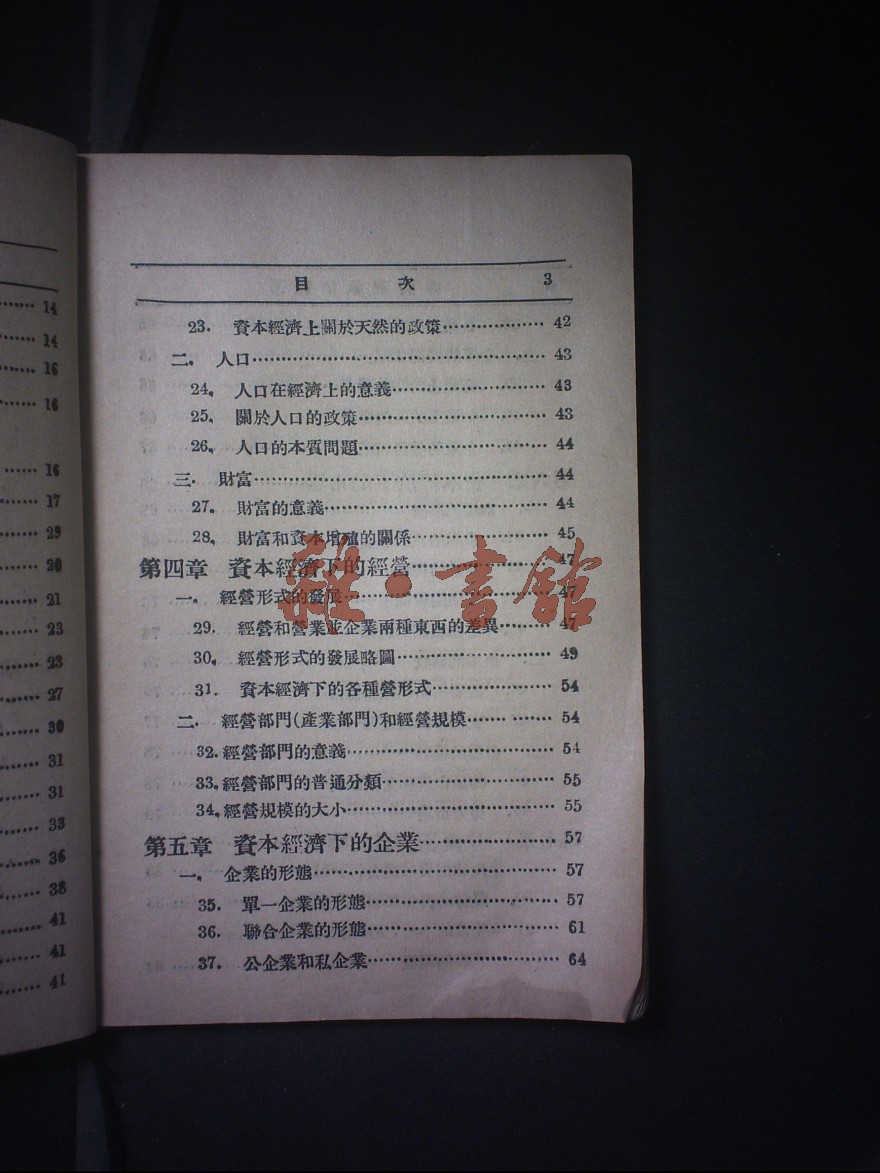 14
14
16
16
16
17
29
20
21
23
23
27
30
31
31
33
36
38
41
41
41
目 次 3
23. 資本經濟上關於天然的政策 42
二. 人口 43
24. 人口在經濟上的意義 43
25. 關於人口的政策 43
26. 人口的本質問題 44
三. 財富 44
27. 財富的意義 44
28. 財富和資本增殖的關係 45
第四章 資本經濟下的經營 47
一. 經營形式的發展 47
29. 經營和營業並企業兩種東西的差異 47
30. 經營形式的發展略圖 49
31. 資本經濟下的各種營形式 54
二. 經營部門(產業部門)和經營規模 54
32. 經營部門的意義 54
33. 經營部門的普通分類 55
34. 經營規模的大小 55
第五章 資本經濟下的企業 57
一. 企業的形態 57
35. 單一企業的形態 57
36. 聯合企業的形態 61
37. 公企業和私企業 64
雜·書館